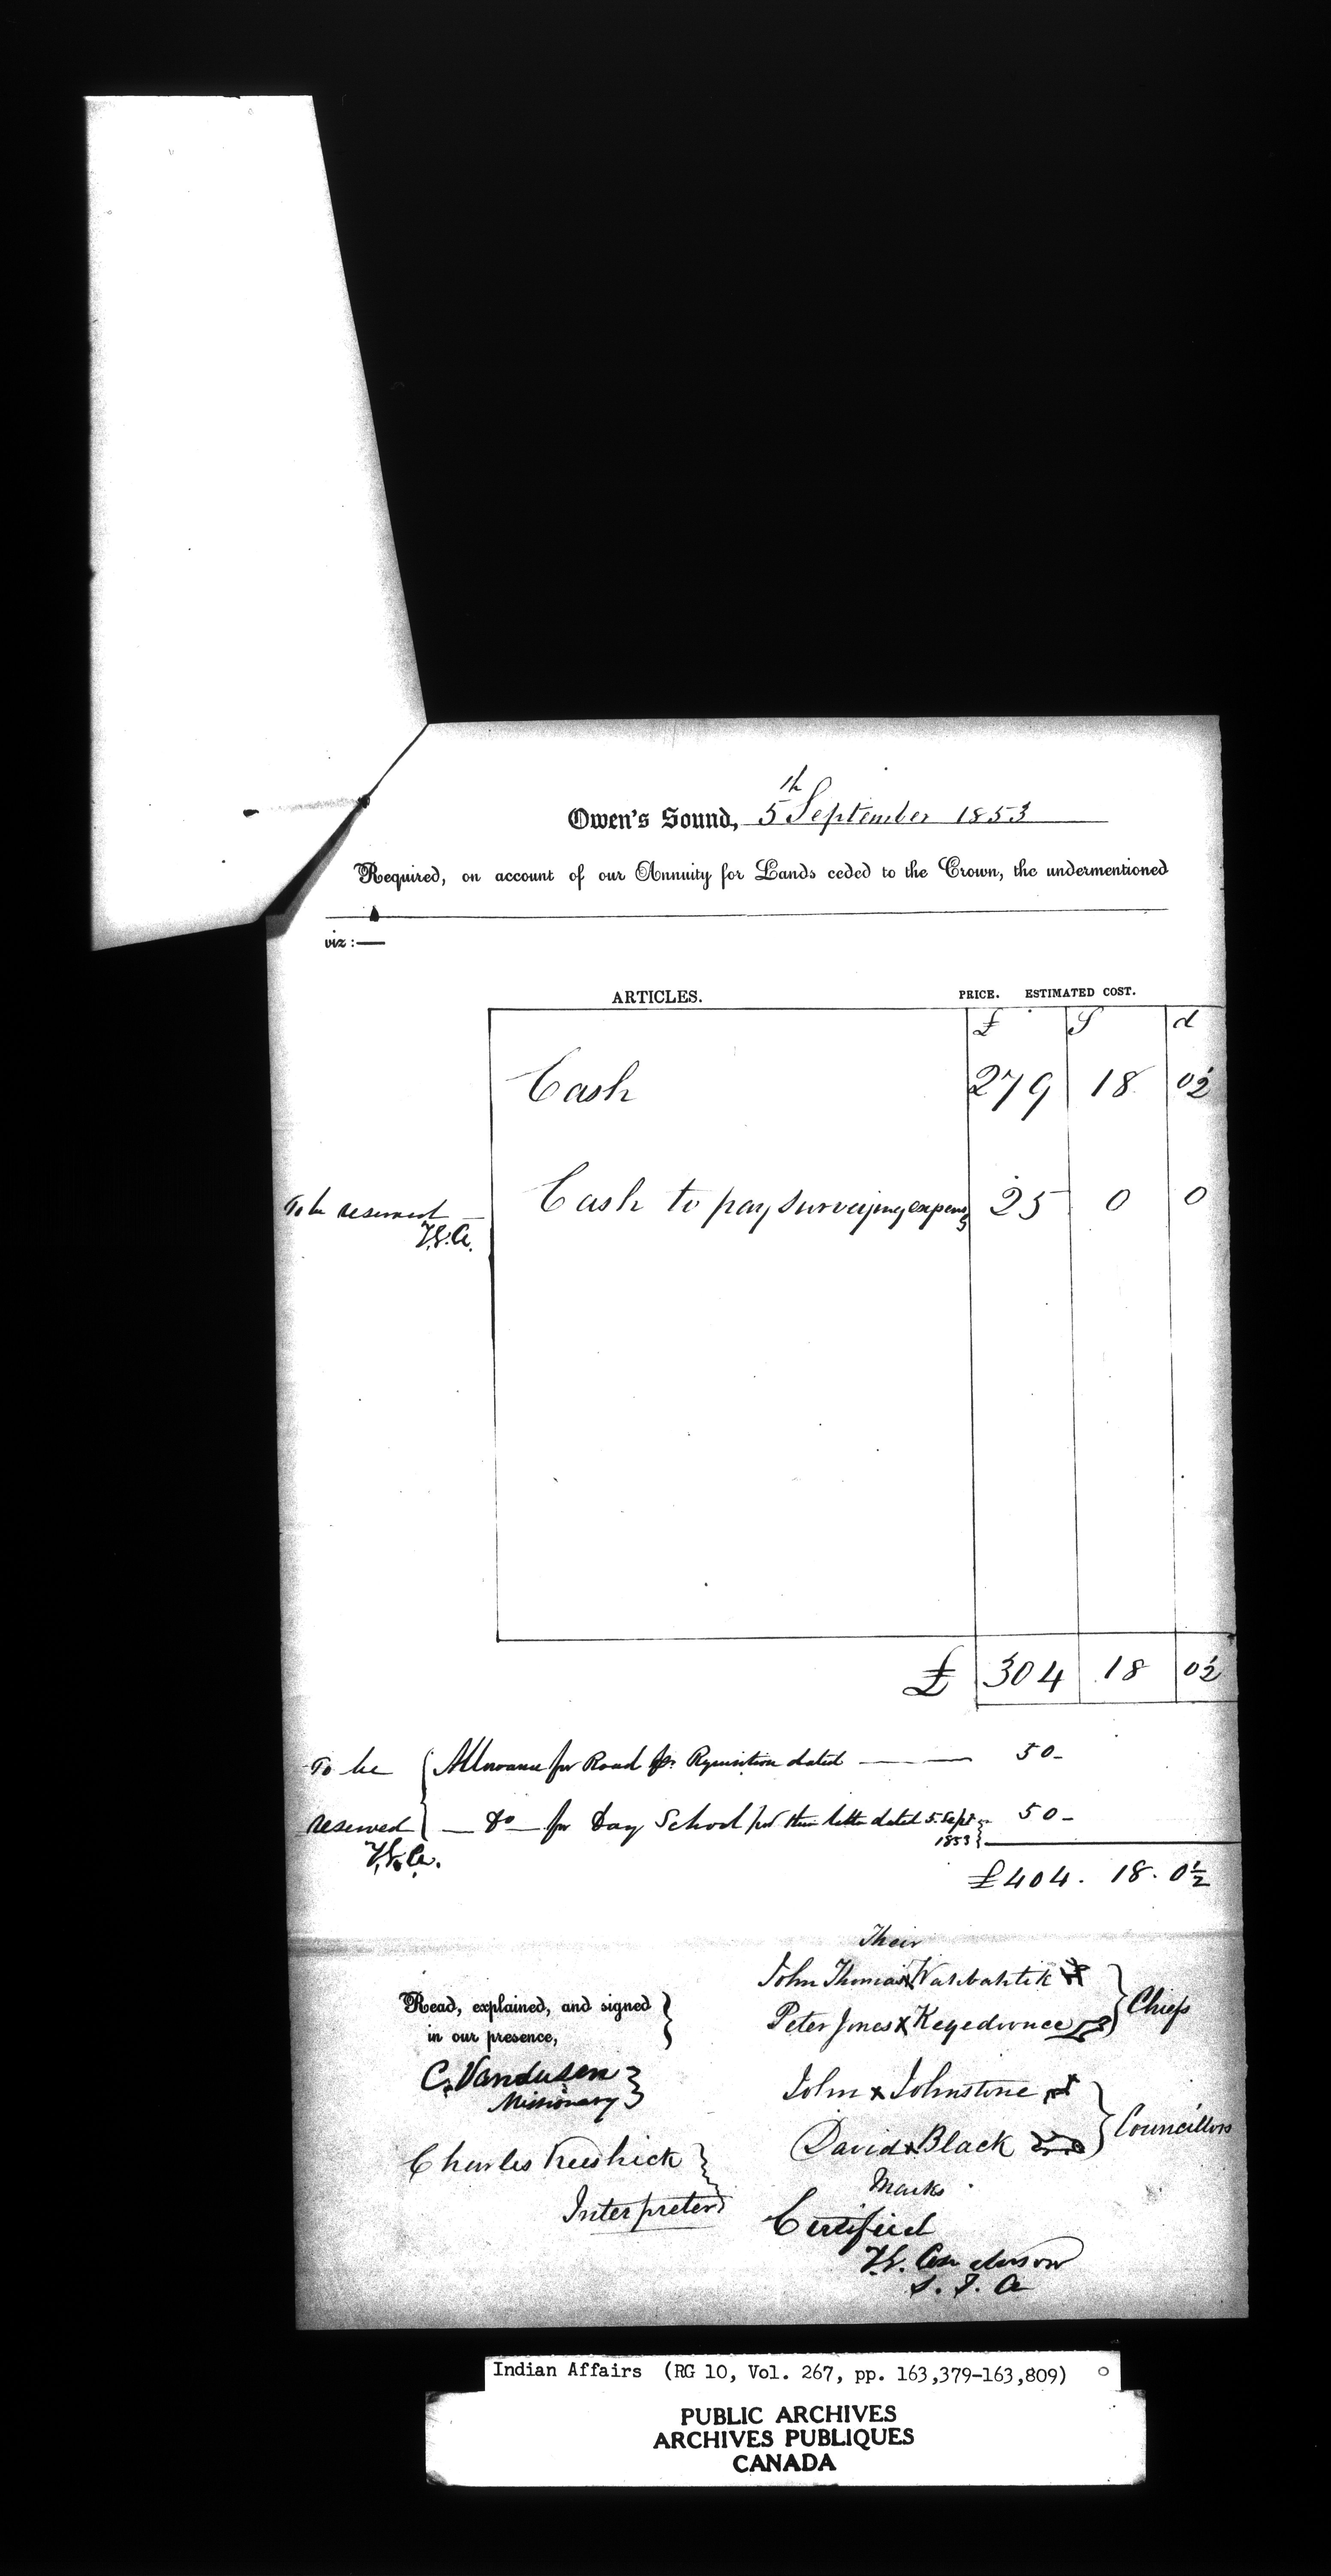 Owen's Sound, 5th September 1853
Required, on account of our Annuity for Lands ceded to the Crown, the undermentioned
viz :—
ARTICLES. PRICE. ESTIMATED COST.
£ S d
Cash 279 18 0½
To be reserved — Cash to pay surveying expenses 25 0 0
T.G.A.
£ 304 18 0½
To be { Allowance for Road per Requisition dated ——— 50-
reserved { — Do — for Day School per their letter dated 5. Sept 1853 } 50-
T.G.A.
£404. 18. 0½
Their
John Thomas x Wahbahtik
Peter Jones x Kegedonce } Chiefs
John x Johnstone
David x Black } Councillors
Marks
Read, explained, and signed
in our presence,
C. Vandusen
Missionary
Charles Keeshick
Interpreter
Certified
T.G. Anderson
S. I. A
Indian Affairs (RG 10, Vol. 267, pp. 163,379-163,809)
PUBLIC ARCHIVES
ARCHIVES PUBLIQUES
CANADA